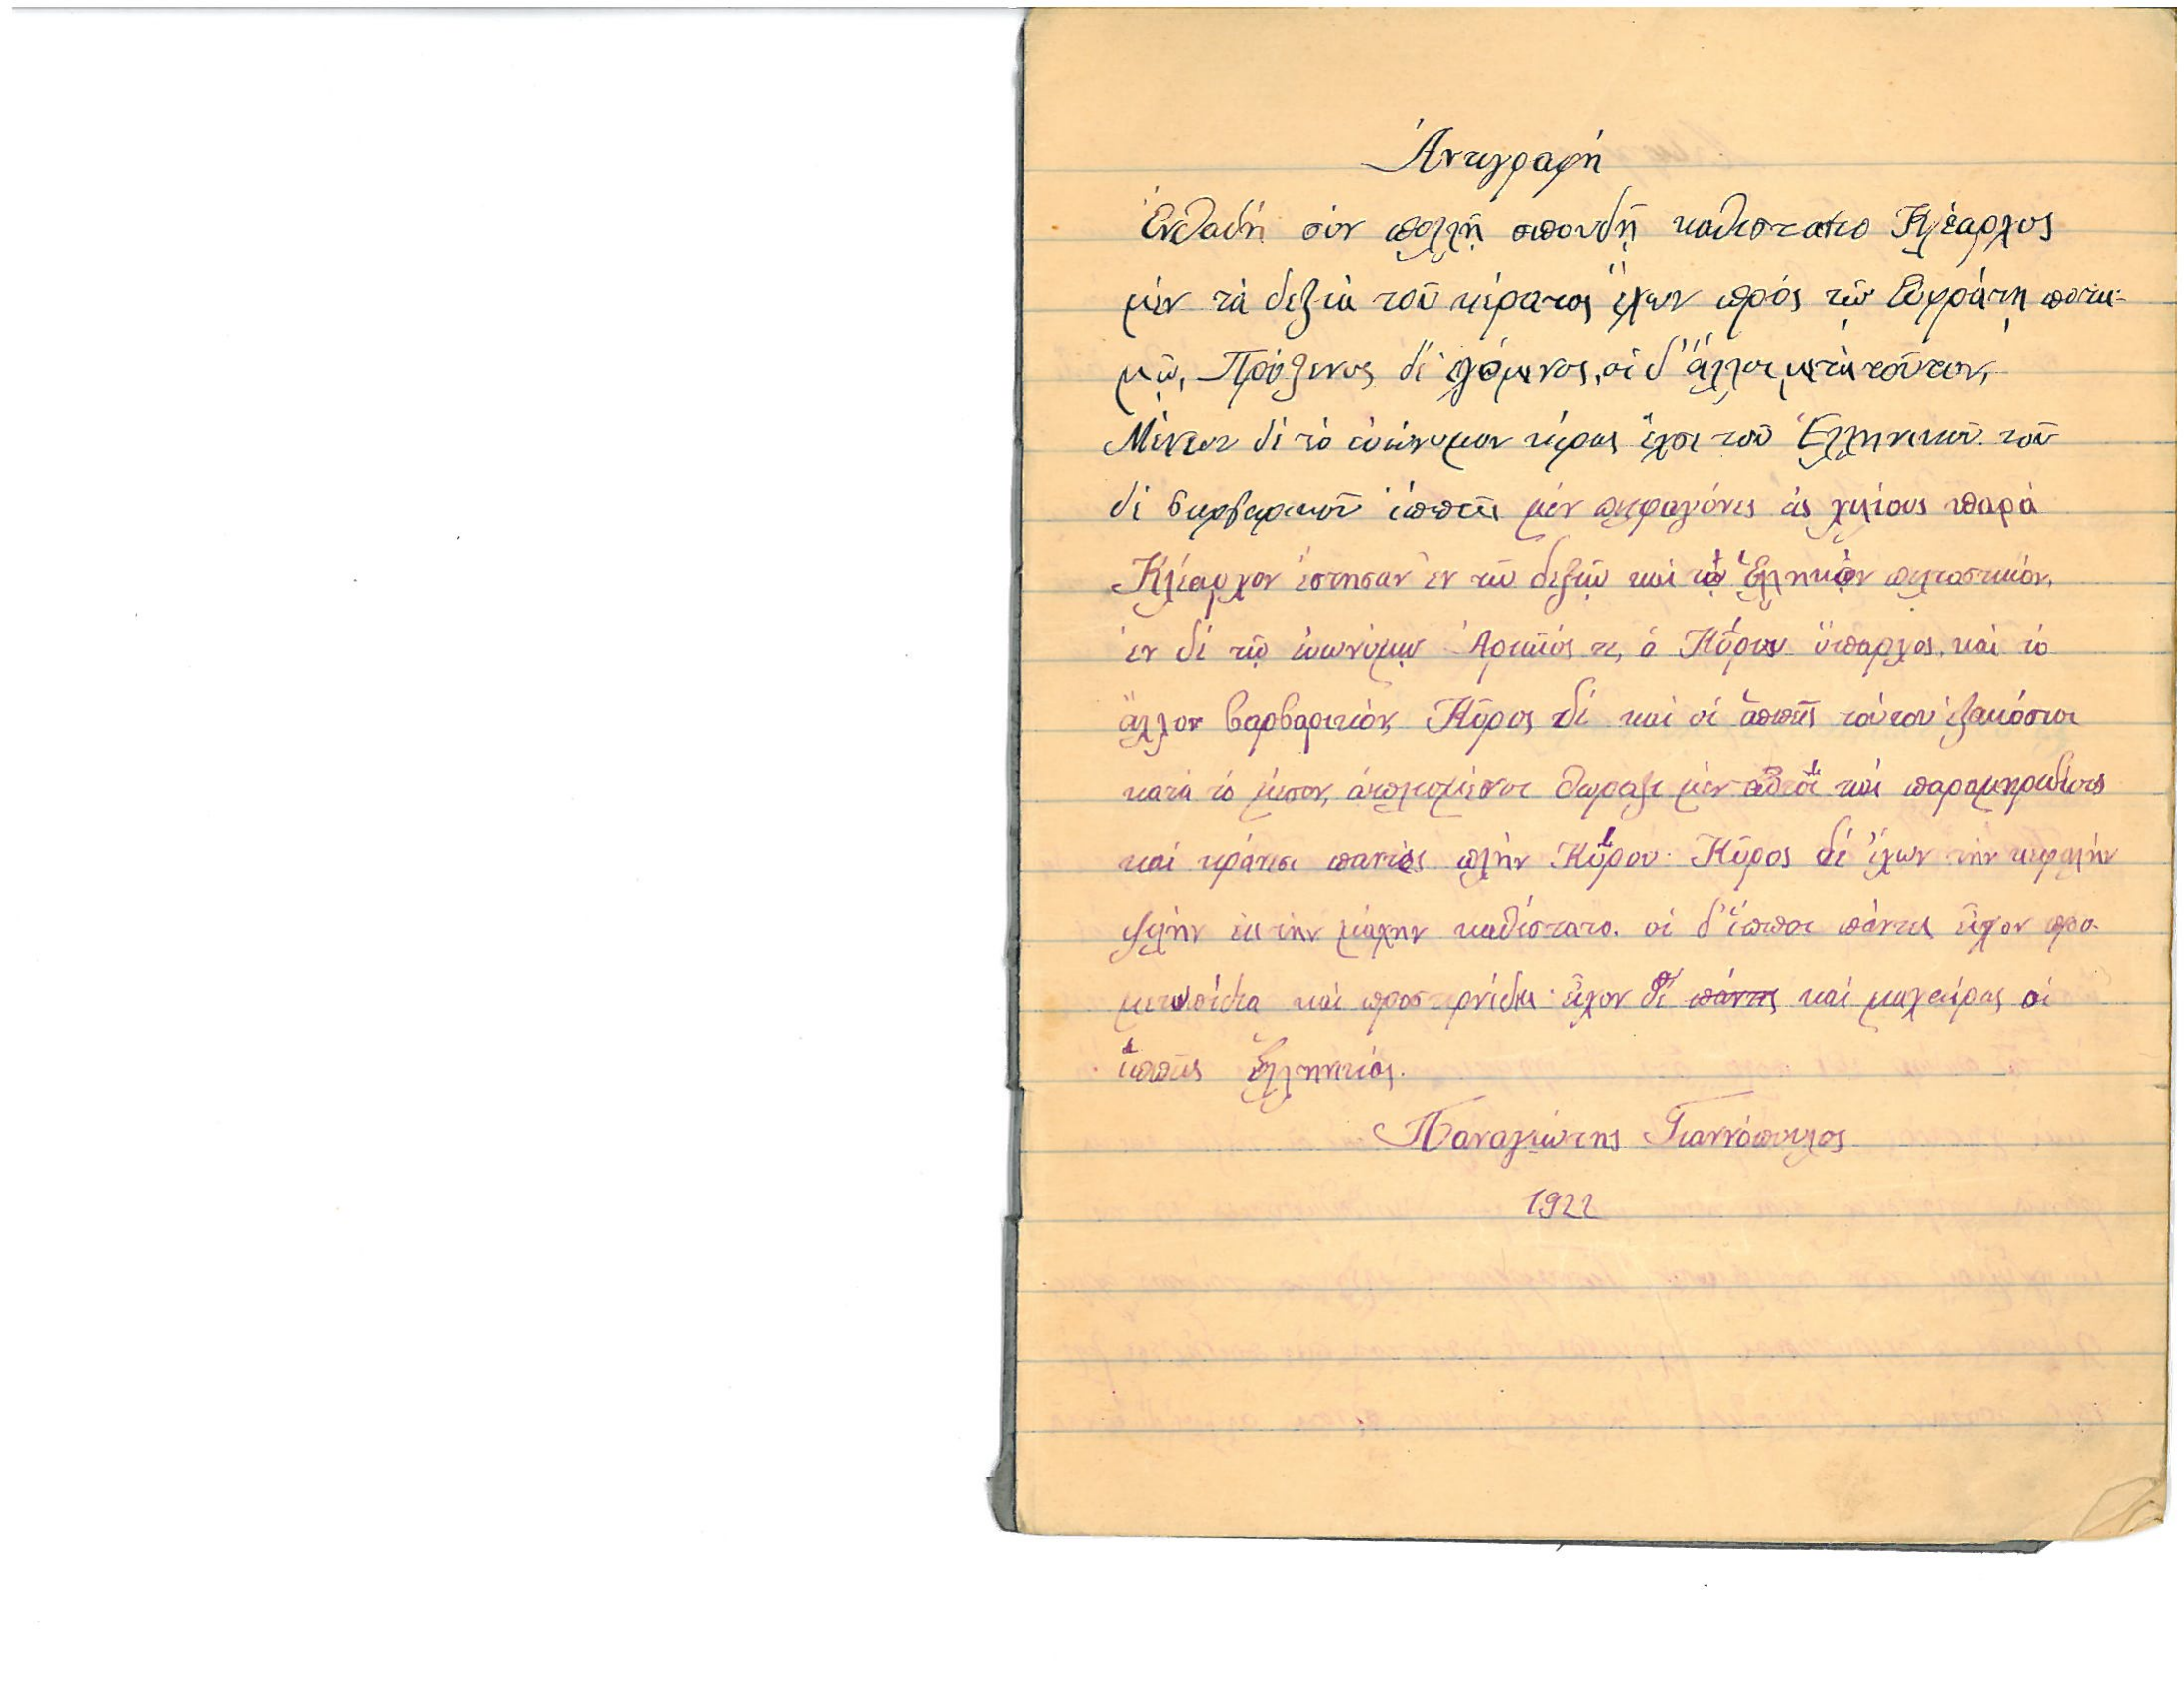 Ἀντιγραφή
Ἐνθαδή σύν πολλῇ σπουδῇ καθιστατο Κλέαρχος
μέν τά δεξιά τοῦ κέρατος ἔχων πρός τῷ Εὐφράτῃ ποτα-
μῷ, Πρόξενος δέ ἐχόμενος, οἱ δ' ἄλλοι μετά τοῦτον,
Μένων δέ τό εὐώνυμον κέρας ἔχσε τοῦ Ἑλληνικοῦ. τοῦ
δέ βαρβαρικοῦ ἱππεῖς μέν παφλαγόνες εἰς χιλίους παρά
Κλέαρχον ἐστησαν ἐν τῷ δεξιῷ καί τό Ἑλληκόν πελταστικόν,
ἐν δέ τῷ εὐωνύμῳ Ἀριαῖός τε, ὁ Κύρου ὕπαρχος, καί τό
ἄλλον βαρβαρικόν, Κῦρος δέ καί οἱ ἱππεῖς τούτου ἑξακόσιοι
κατά τό μέσον, ὁπλισμένοι θωραξι μέν αὐτοί καί παραμηριδίοις
καί κράνεσι παντες πλήν Κύρου· Κῦρος δέ ἔχων τήν κεφαλήν
ψιλήν εἰς τήν μάχην καθίστατο. οἱ δ' ἵπποι πάντες εἶχον προ-
μετωπίδια καί προστερνίδια· εἶχον δέ πάντες καί μαχαίρας οἱ
ἱππεῖς Ἑλληνικάς.
Παναγιώτης Γιαννόπουλος
1922